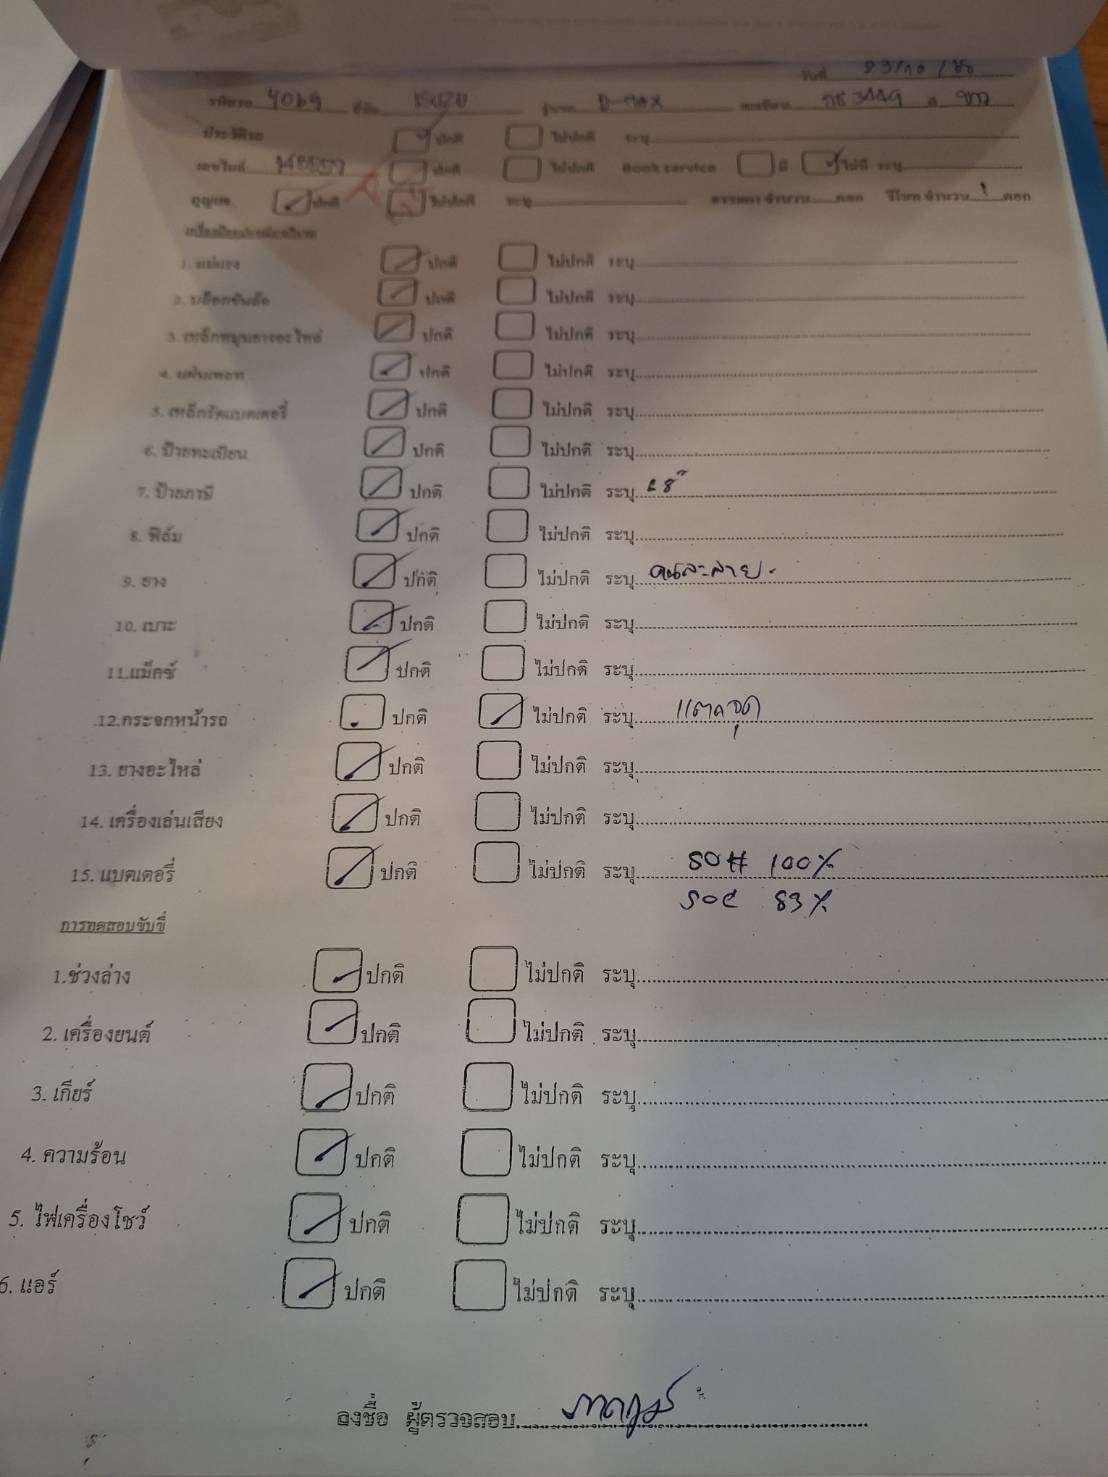 วันที่ 23/10/
รหัสรถ 4069 ยี่ห้อ ISUZU รุ่นรถ D-MAX ทะเบียน 3449 สี ขาว
ประวัติรถ ปกติ ไม่ปกติ ระบุ
เลขไมล์ ปกติ ไม่ปกติ Book service มี ไม่มี ระบุ
กุญแจ ปกติ ไม่ปกติ ระบุ ธรรมดา จำนวน ดอก รีโมท จำนวน 1 ดอก
1. แม่แรง ปกติ ไม่ปกติ ระบุ
2. บล็อกขันล้อ ปกติ ไม่ปกติ ระบุ
3. เหล็กหมุนยางอะไหล่ ปกติ ไม่ปกติ ระบุ
4. แผ่นเพลท ปกติ ไม่ปกติ ระบุ
5. เหล็กรัดแบตเตอรี่ ปกติ ไม่ปกติ ระบุ
6. ป้ายทะเบียน ปกติ ไม่ปกติ ระบุ
7. ป้ายภาษี ปกติ ไม่ปกติ ระบุ
8. ฟิล์ม ปกติ ไม่ปกติ ระบุ
9. ยาง ปกติ ไม่ปกติ ระบุ คนละลาย
10. เบาะ ปกติ ไม่ปกติ ระบุ
11.แม็กซ์ ปกติ ไม่ปกติ ระบุ
12.กระจกหน้ารถ ปกติ ไม่ปกติ ระบุ แตกจุด
13. ยางอะไหล่ ปกติ ไม่ปกติ ระบุ
14. เครื่องเล่นเสียง ปกติ ไม่ปกติ ระบุ
15. แบตเตอรี่ ปกติ ไม่ปกติ ระบุ SOH 100%
SOC 83%
การทดสอบขับขี่
1.ช่วงล่าง ปกติ ไม่ปกติ ระบุ
2. เครื่องยนต์ ปกติ ไม่ปกติ ระบุ
3. เกียร์ ปกติ ไม่ปกติ ระบุ
4. ความร้อน ปกติ ไม่ปกติ ระบุ
5. ไฟเครื่องโชว์ ปกติ ไม่ปกติ ระบุ
6. แอร์ ปกติ ไม่ปกติ ระบุ
ลงชื่อ ผู้ตรวจสอบ